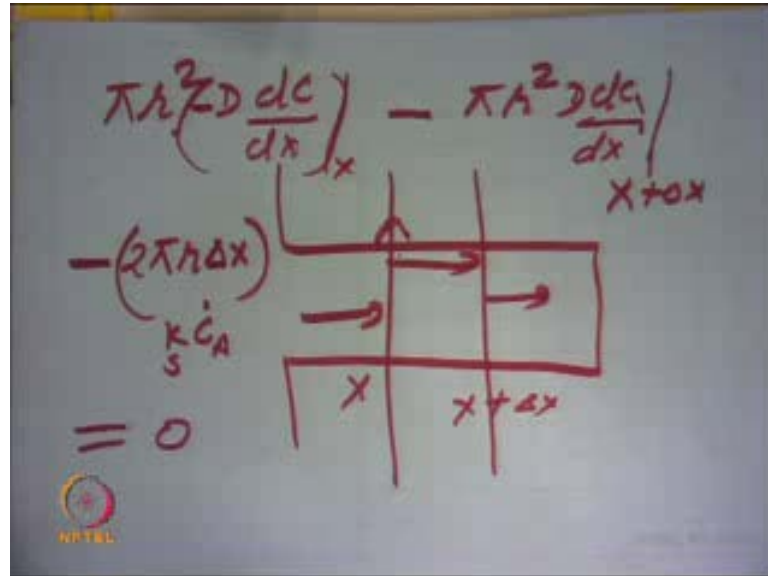 πr²(-D dc/dx)|x - πr² D dc₁/dx|x+Δx
-(2πrΔx)
ks CA
= 0
x
x + Δx
NPTEL